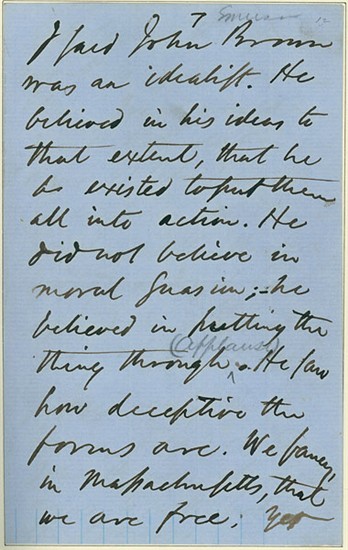 7 Emerson 12
I said John Brown
was an idealist. He
believed in his ideas to
that extent, that he
be existed to put them
all into action. He
did not believe in
moral suasion; – he
believed in putting the
(applause)
thing through. He saw
how deceptive the
forms are. We fancy,
in Massachusetts, that
we are free; yet